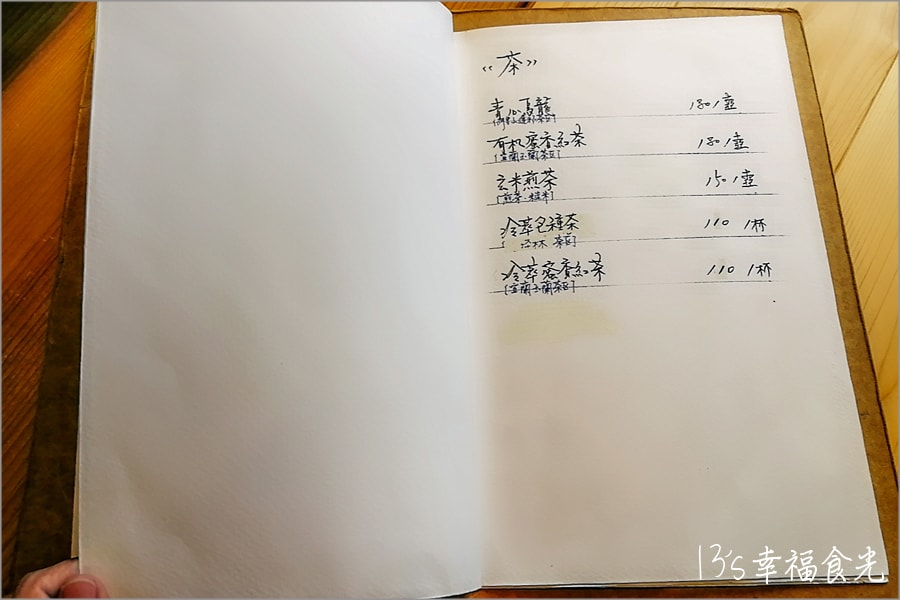 《茶》
青心烏龍 180/壺
有机蜜香紅茶 180/壺
[宜蘭玉蘭茶區]
玄米煎茶 150/壺
[煎茶、糙米]
冷萃包種茶 110 /杯
[坪林 茶區]
冷萃蜜香紅茶 110 /杯
[宜蘭玉蘭茶區]
13's幸福食光